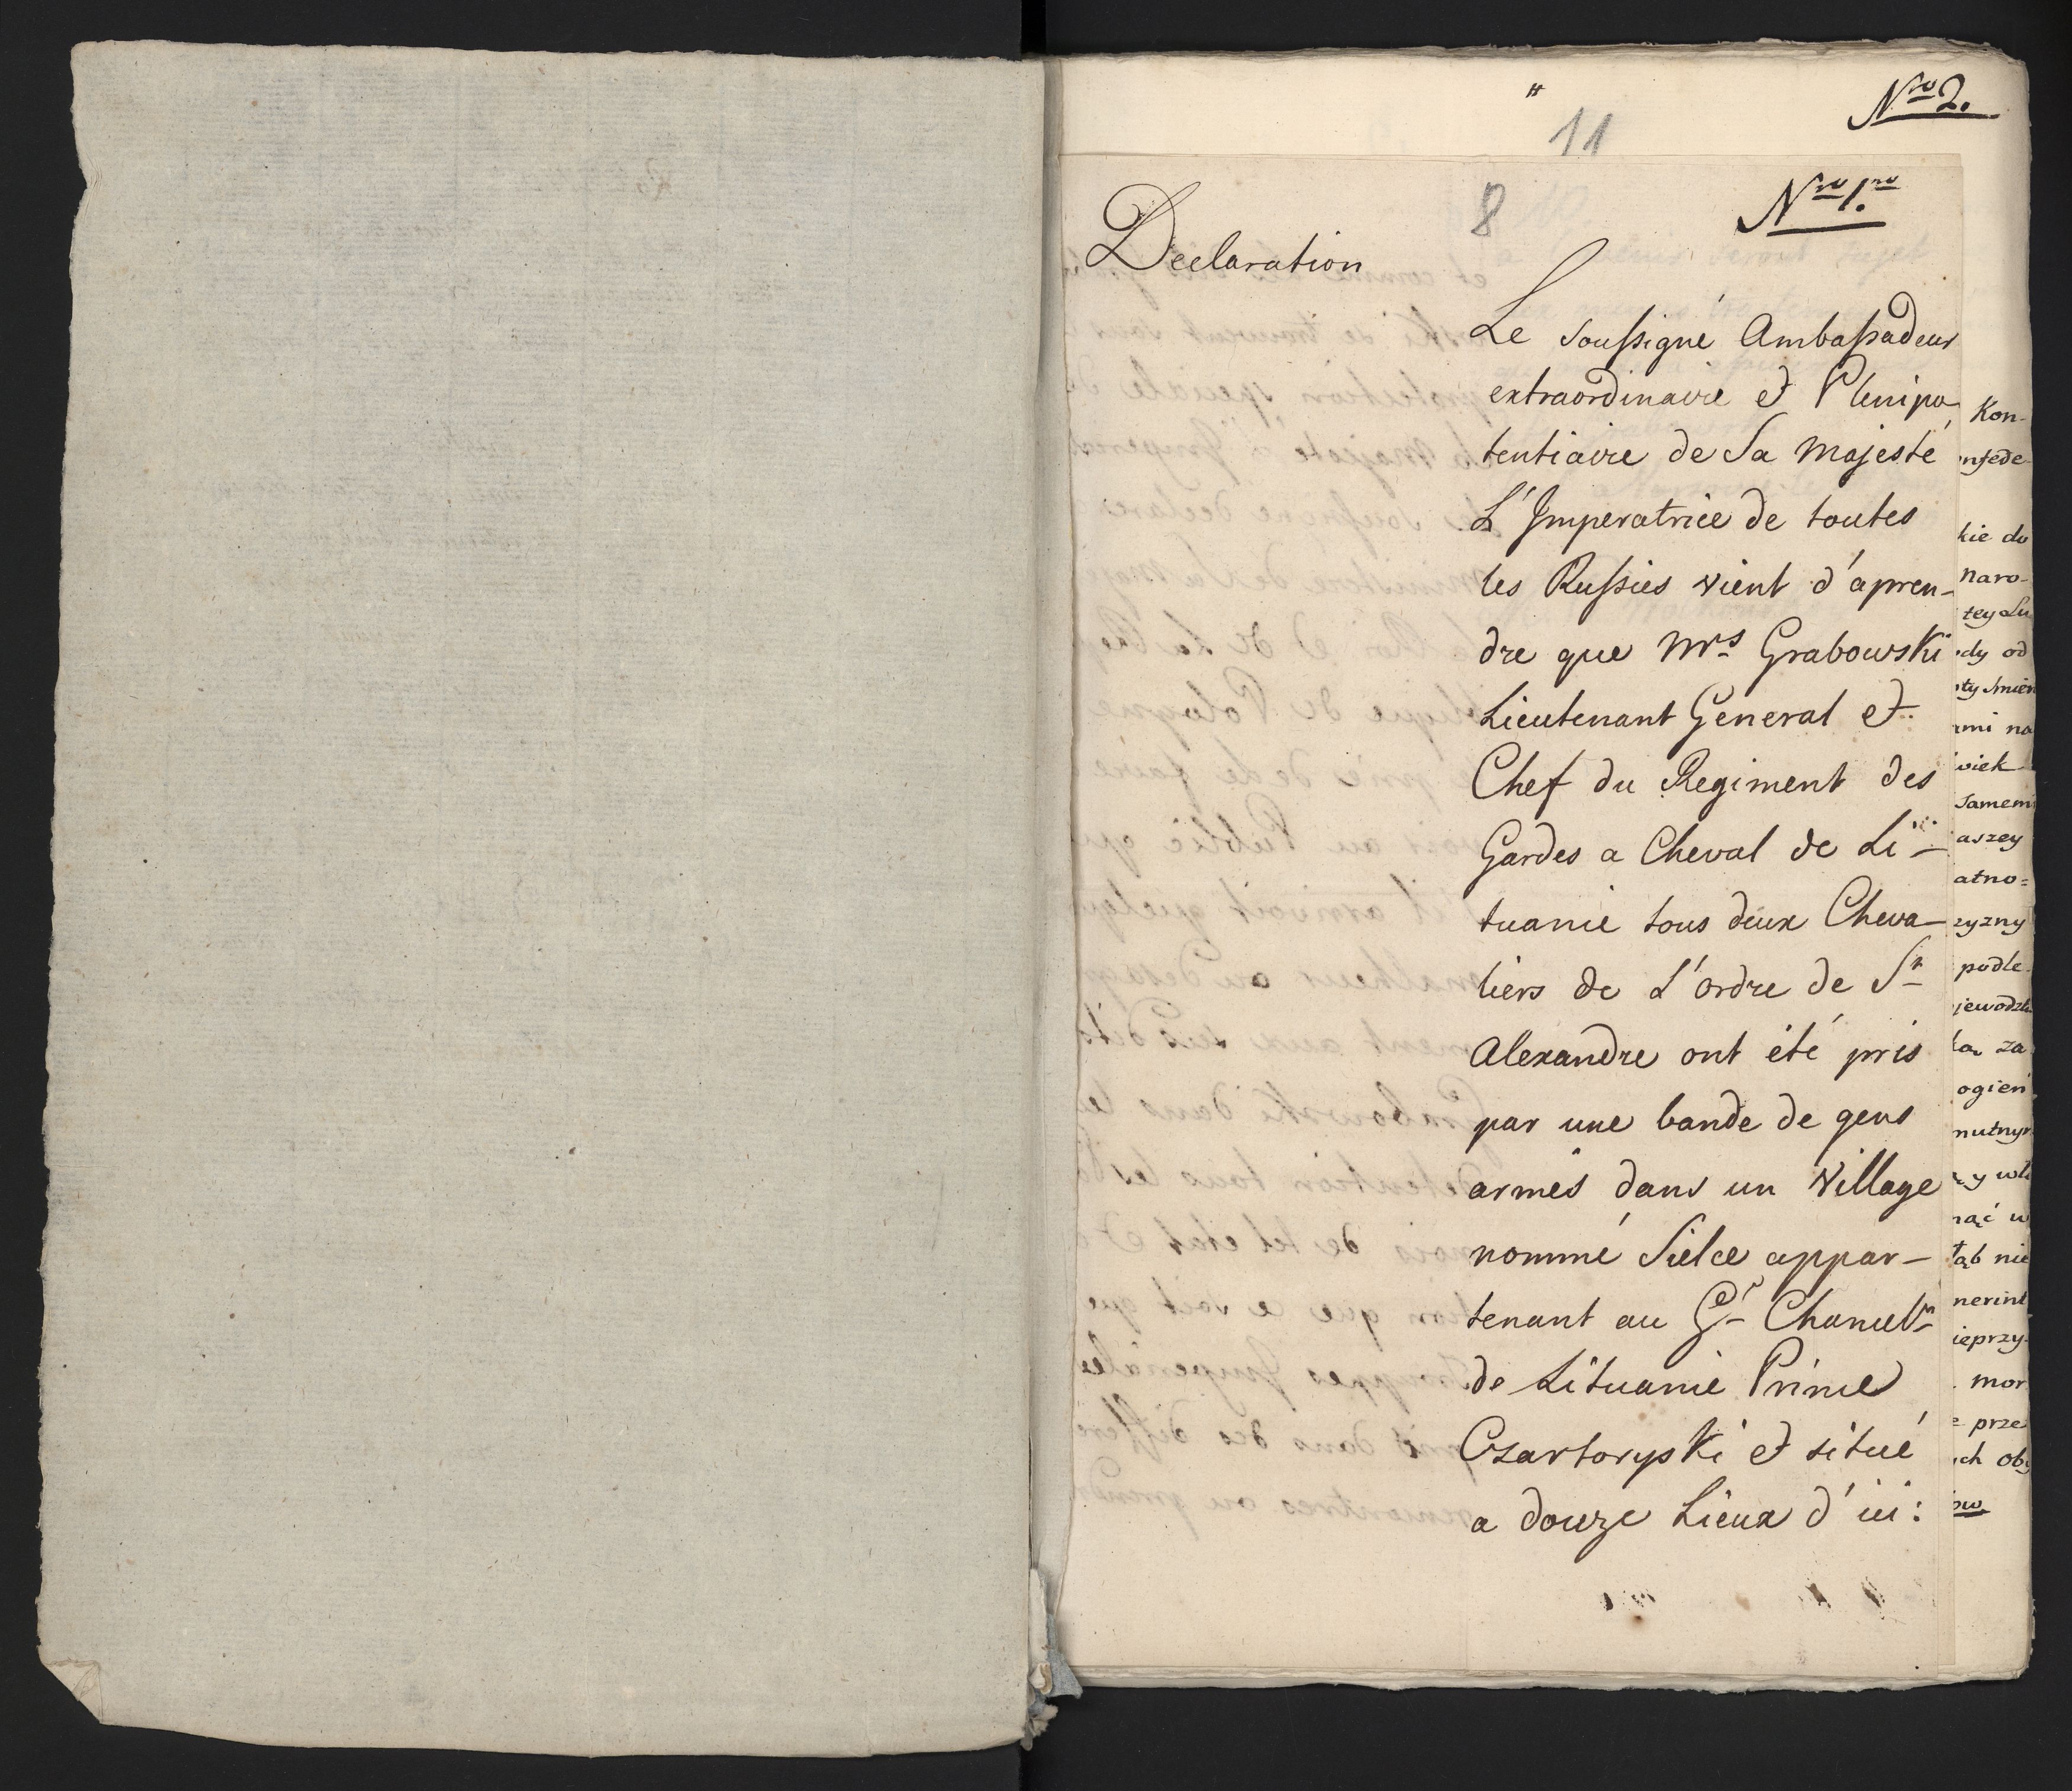 Nro 2.
11
8
Nro 1.mo
Declaration
Le soussigné Ambassadeur
extraordinaire et Plenipo
tentiaire de Sa Majesté
L'Imperatrice de toutes
les Russies vient d'apren-
dre que Mrs Grabowski
Lieutenant General et
Chef du Regiment des
Gardes a Cheval de Li-
tuanie tous deux Cheva-
liers de L'ordre de St
Alexandre ont été pris
par une bande de gens
armés dans un Village
nommé Sielce appar-
tenant au Gd
de Lituanie Prince
Czartoryski et situé
a douze Lieux d'ici:
Kon-
nfede-
kie do
naro-
tey Lu
dy od
mi na
wiek
samem
aszey
atno=
zyzny
podle
za
ogień
nie
nerint
ieprzy-
mor
prze
ch oby
ow